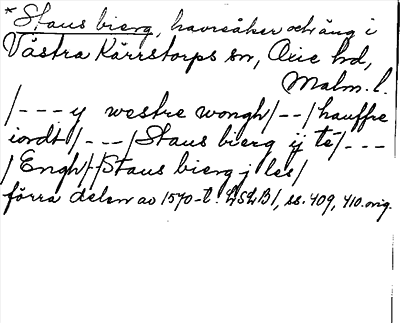 * Staus bierg, havreåker och äng i
Västra Kärrstorps sn, Oxie hd,
Malm. l.
/---y westre wongh/--/hauffre
iordt/---/Staus bierg ij te/---
/Engh/-/Staus bierg j les/
förra delen av 1570-t. LSLB1, ss. 409, 410. orig.